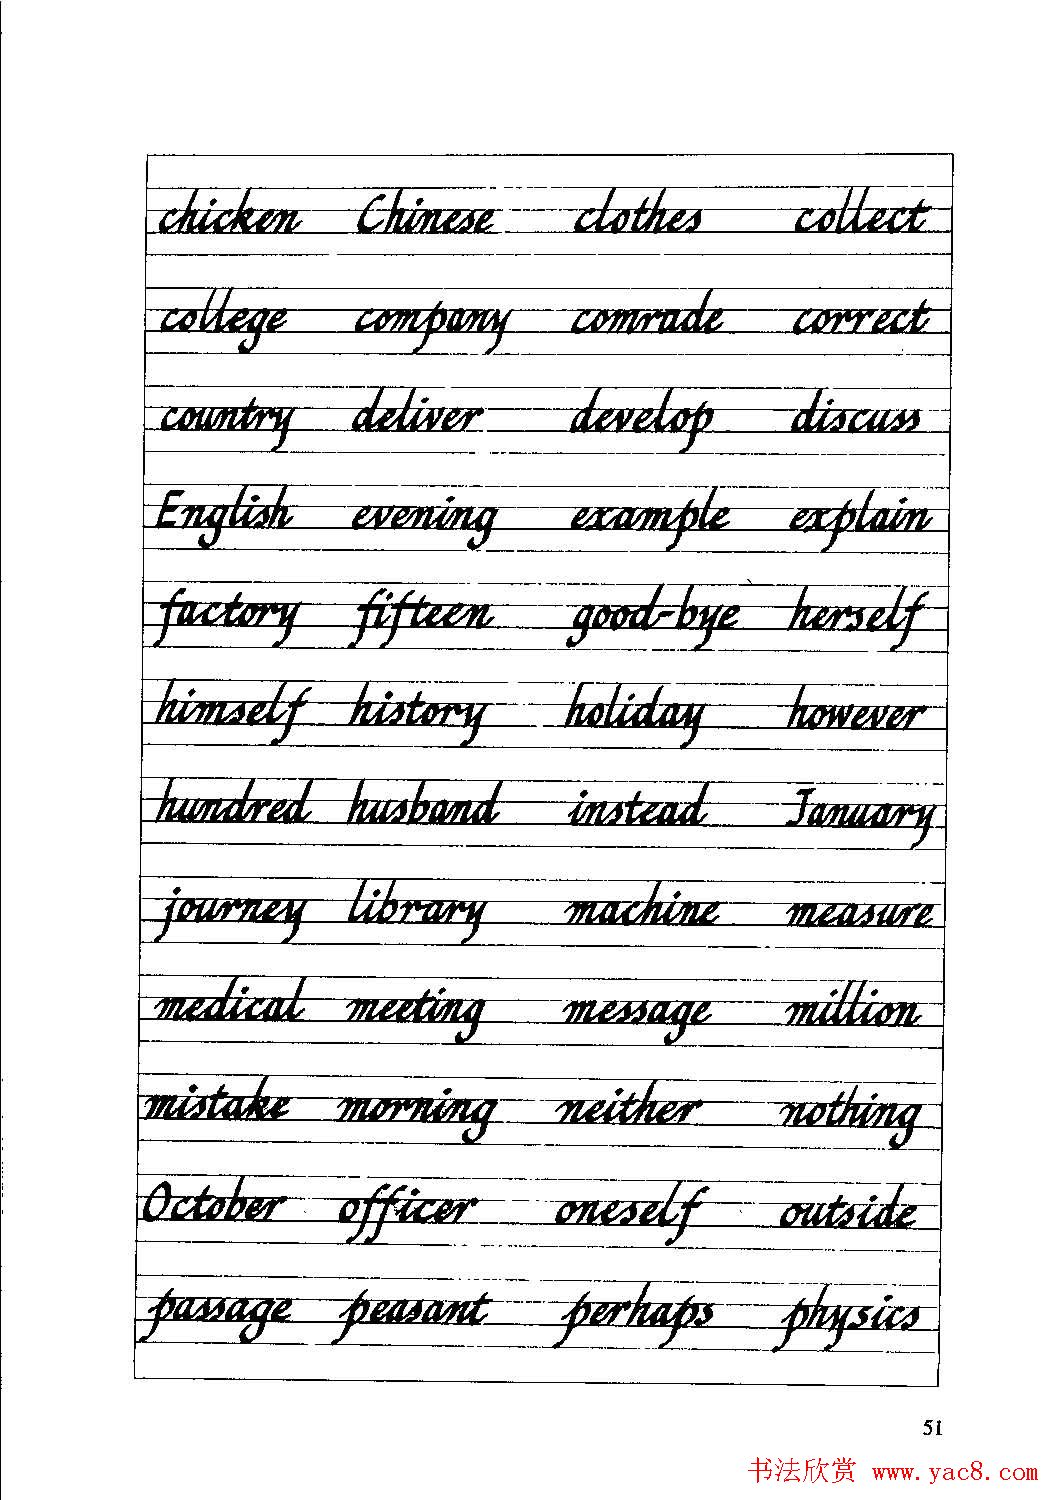 chicken Chinese clothes collect
college company comrade correct
country deliver develop discuss
English evening example explain
factory fifteen good-bye herself
himself history holiday however
hundred husband instead January
journey library machine measure
medical meeting message million
mistake morning neither nothing
October officer oneself outside
passage peasant perhaps physics
51
书法欣赏 www.yac8.com